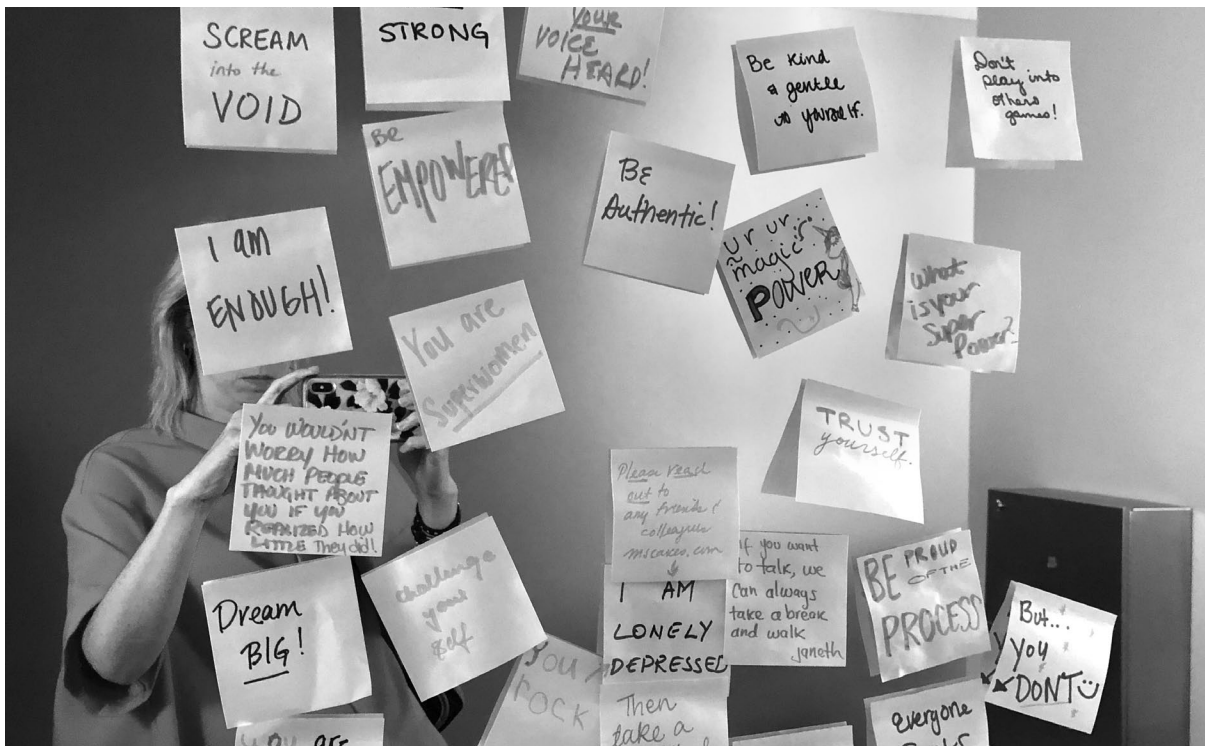 SCREAM
into the
VOID
STRONG
YOUR
VOICE
HEARD!
Be kind
& gentle
to yourself.
Don't
play into
others
games!
Be
EMPOWERED
BE
Authentic!
I am
ENOUGH!
ur ur
magic
POWER
What
is your
Super
Power?
You are
Superwomen
YOU WOULDN'T
WORRY HOW
MUCH PEOPLE
THOUGHT ABOUT
YOU IF YOU
REALIZED HOW
LITTLE They did!
TRUST
yourself.
Please read
out to
any friends &
colleagues
I AM
LONELY
DEPRESSED
Then
take a
if you want
to talk, we
can always
take a break
and walk
janeth
BE PROUD
OF THE
PROCESS
But...
you
DON'T
Dream
BIG!
challenge
your
self
YOU
ROCK
you are
everyone